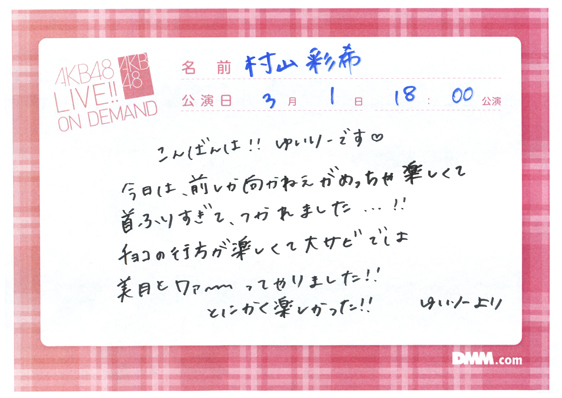 AKB48
LIVE!!
ON DEMAND
AKB
48
名前 村山彩希
公演日 3月1日 18:00公演
こんばんは!! ゆいりーです♡
今日は、前しか向かねえがめっちゃ楽しくて
首ふりすぎて、つかれました...!!
チョコの行方が楽しくて大サビでは
美月とワァーーってやりました!!
とにかく楽しかった!!
ゆいりーより
DMM.com